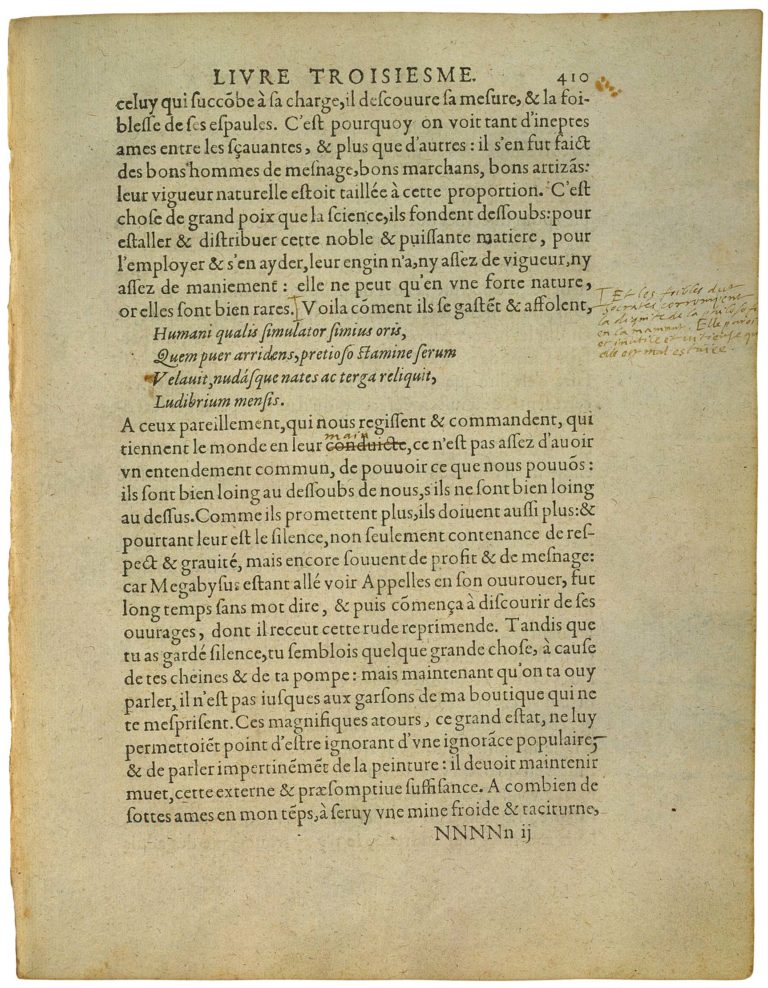 LIVRE TROISIESME. 410
celuy qui succõbe à sa charge, il descouure sa mesure, & la foi-
blesse de ses espaules. C'est pourquoy on voit tant d'ineptes
ames entre les sçauantes, & plus que d'autres : il s'en fut faict
des bons hommes de mesnage, bons marchans, bons artizãs:
leur vigueur naturelle estoit taillée à cette proportion. C'est
chose de grand poix que la science, ils fondent dessoubs: pour
estaller & distribuer cette noble & puissante matiere, pour
l'employer & s'en ayder, leur engin n'a, ny assez de vigueur, ny
assez de maniement : elle ne peut qu'en vne forte nature,
or elles sont bien rares. Voila cõment ils se gastẽt & affolent,
Et les foibles dict
Socrates corrompent
la dignité de la philosofie
en la maniant. Elle paroit
et inutile et vicieuse quand
elle est mal estuiee
Humani qualis simulator simius oris,
Quem puer arridens, pretioso stamine serum
Velauit, nudásque nates ac terga reliquit,
Ludibrium mensis.
A ceux pareillement, qui nous regissent & commandent, qui
main
tiennent le monde en leur conduicte, ce n'est pas assez d'auoir
vn entendement commun, de pouuoir ce que nous pouuõs :
ils sont bien loing au dessoubs de nous, s'ils ne sont bien loing
au dessus. Comme ils promettent plus, ils doiuent aussi plus: &
pourtant leur est le silence, non seulement contenance de res-
pect & grauité, mais encore souuent de profit & de mesnage:
car Megabysus estant allé voir Appelles en son ouurouer, fut
long temps sans mot dire, & puis cõmença à discourir de ses
ouurages, dont il receut cette rude reprimende. Tandis que
tu as gardé silence, tu semblois quelque grande chose, à cause
de tes cheines & de ta pompe : mais maintenant qu'on t'a ouy
parler, il n'est pas iusques aux garsons de ma boutique qui ne
te mesprisent. Ces magnifiques atours, ce grand estat, ne luy
permettoiẽt point d'estre ignorant d'vne ignorãce populaire,
& de parler impertinẽmẽt de la peinture : il deuoit maintenir
muet, cette externe & præsomptiue suffisance. A combien de
sottes ames en mon tẽps, à seruy vne mine froide & taciturne,
NNNNn ij